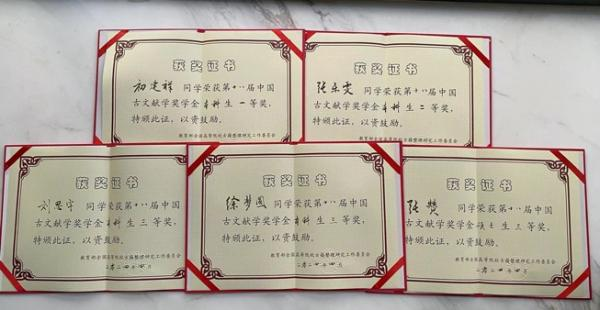 获奖证书
初建祥 同学荣获第十八届中国
古文献学奖学金本科生一等奖，
特颁此证，以资鼓励。
教育部全国高等院校古籍整理研究工作委员会
获奖证书
张乐雯 同学荣获第十八届中国
古文献学奖学金本科生二等奖，
特颁此证，以资鼓励。
教育部全国高等院校古籍整理研究工作委员会
获奖证书
刘思宇 同学荣获第十八届中国
古文献学奖学金本科生三等奖，
特颁此证，以资鼓励。
教育部全国高等院校古籍整理研究工作委员会
二〇二四年四月
获奖证书
徐梦圆 同学荣获第十八届中国
古文献学奖学金本科生三等奖，
特颁此证，以资鼓励。
教育部全国高等院校古籍整理研究工作委员会
二〇二四年四月
获奖证书
张赞 同学荣获第十八届中国
古文献学奖学金硕士生三等奖，
特颁此证，以资鼓励。
教育部全国高等院校古籍整理研究工作委员会
二〇二四年四月